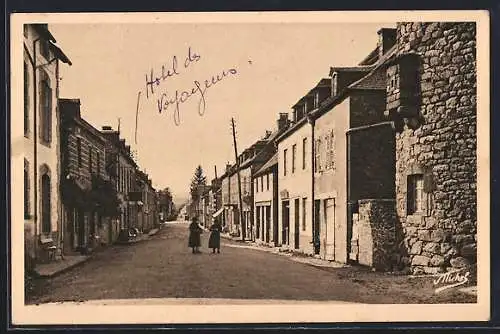 Hotel des
Voyageurs
Michel